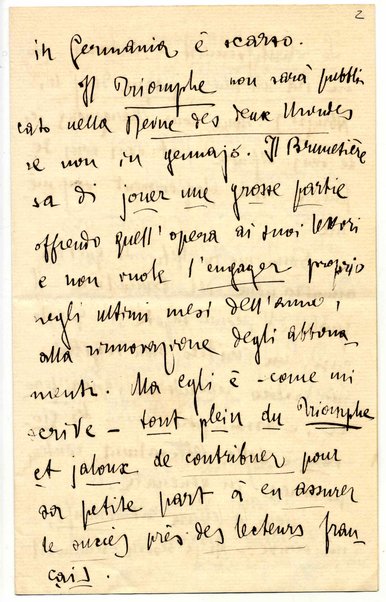 2
in Germania, è scarso.
Il Triomphe non sarà pubbli
cato nella Revue des deux Mondes
se non in gennajo. Il Brunetière
sa di jouer une grosse partie
offrendo quell'opera ai suoi lettori
e non vuole l'engager proprio
negli ultimi mesi dell'anno,
alla rinnovazione degli abbona
menti. Ma egli è – come mi
scrive – tout plein du Triomphe
et jaloux de contribuer pour
sa petite part à en assurer
le succès près des lecteurs fran
çais.